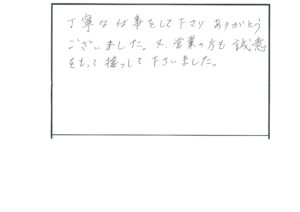 丁寧な仕事をして下さり ありがとう
ございました。又、営業の方も 誠意
をもって接っして下さいました。